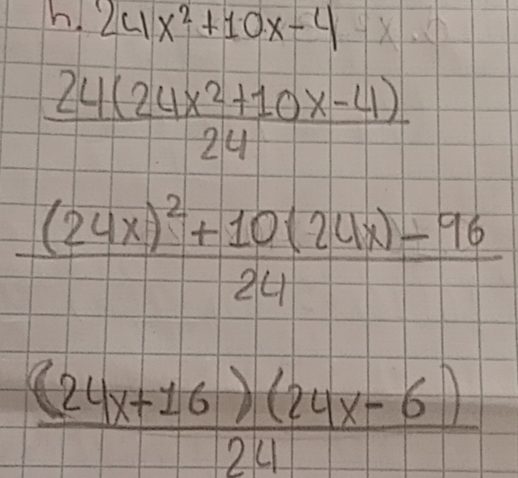 h. 24x²+10x-4
24(24x²+10x-4)
24
(24x)²+10(24x)-96
24
(24x+16)(24x-6)
24